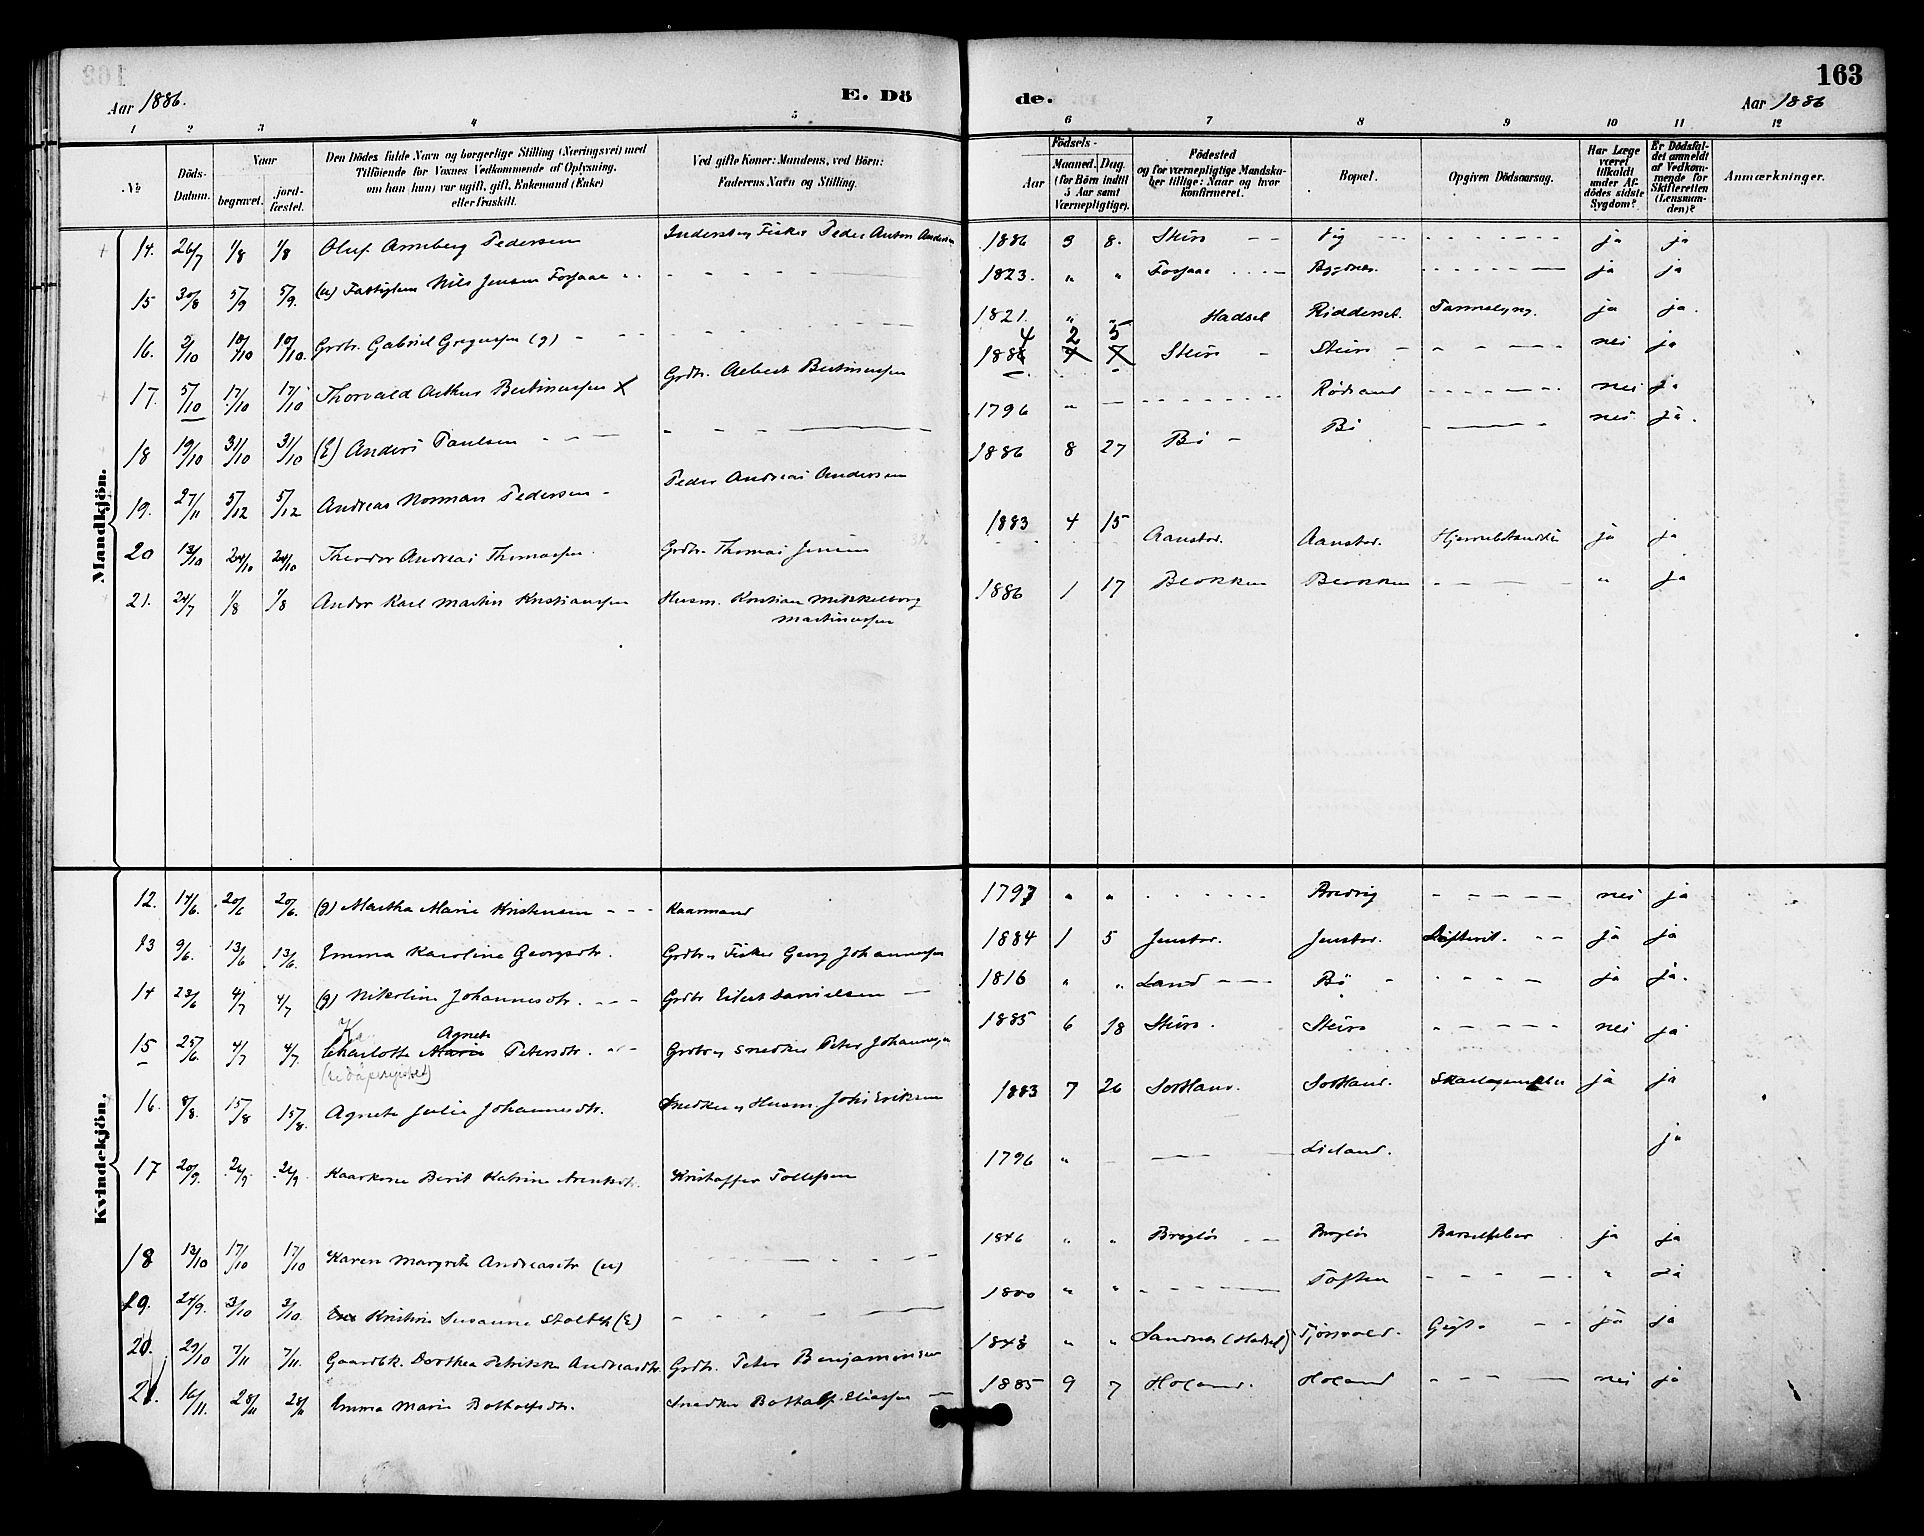 163
Aar 1886.
E. Dö
de.
Aar 1886
1 2 3 4 5 6 7 8 9 10 11 12
No
Döds-Datum.
Naar
begravet.
jord-fæstet.
Den Dödes fulde Navn og borgerlige Stilling (Næringsvei) med
Tilföiende for Voxnes Vedkommende af Oplysning,
om han (hun) var ugift, gift, Enkemand (Enke)
eller fraskilt.
Ved gifte Koner: Mandens, ved Börn:
Faderens Navn og Stilling.
Födsels-
Aar
Maaned. Dag.
(for Börn indtil
5 Aar samt
Værnepligtige).
Födested
og for værnepligtige Mandska-
ber tillige: Naar og hvor
konfirmeret.
Bopæl.
Opgiven Dödsaarsag.
Har Læge
været
tilkaldt
under Af-
dödes sidste
Sygdom?
Er Dödsfal-
det anmeldt
af Vedkom-
mende for
Skifteretten
(Lensman-
den)?
Anmærkninger.
Mandkjön.
14. 26/7 1/8 1/8 Oluf Arneberg Pedersen Fisker Peder Anton Andersen 1886 8. Skirs Vig ja ja
15 30/8 5/9 5/9. (u) Nils Jensen Forfaae 1823. " " Forfaae ja ja
16. 2/10 10/10 10/10. Grdbr. Gabriel Gregusen (g) 1821. " " Hadsel Ridderset. ja ja.
17. 5/10 17/10 17/10 Thorvald Arthur Bertinussen X Grdbr. Albert Bertinussen 1884 2 5 Skirs Skirs nei ja
18 19/10 31/10 31/10 (E) Anders Paulsen 1796 " Rödsand nei ja
19. 27/11 5/12 5/12 Andreas Norman Pedersen Peder Andreas Andersen 1886 8 27 Bö Bö nei ja.
20 13/10 24/10 24/10 Theodor Andreas Thomassen Grdbr. Thomas Jensen 1883 4 15 Aanstad. Aanstad. ja ja
21. 24/7 1/8 1/8 Andor Karl Martin Kristiansen Husm. Kristian Mikkelborg Martinussen 1886 1 17 Blokken Blokken " ja
Kvindekjön.
12. 14/6. 20/6 20/6. (g) Martha Marie Kristensen Kaarmand 1797 " " Bredvig nei ja
13 9/6. 13/6 13/6. Emma Karoline Georgsdtr. Grdbr. & Fisker Georg Johannessen 1884 1 5 Jenstad. Jenstad. ja ja
14 23/6 4/7 4/7 (g) Nikoline Johannesdtr. Grdbr Eilert Danielsen 1816 " " Land Bö ja ja.
15 25/6. 4/7 4/7. Charlotte Marie Agnete Petersdtr. Grdbr. & Snedker Peter Johannessen 1885 6 18 Skirs. Skirs nei ja
16. 8/8. 15/8 15/8. Agnete Julie Johannesdtr. Snedker & Husm. Johs Eriksen 1883 7 26 Sortland. Sortland. Skarlagensfeber ja ja
17 20/9. 26/9 26/9. Kaarkone Berit Katrine Arentsdtr. Kristoffer Tollefsen 1796 " Lieland. ja
18 13/10 17/10 17/10 Karen Margrete Andreasdtr (u) 1846 " " Bröglös Bröglös Barselfeber ja ja
19. 24/9. 3/10 3/10. Kristine Susanne Stoltz (E) 1800 " " Toften " ja
20. 29/10 7/11 7/11. Gaardbk. Dorthea Petrikke Andreasdtr. Grdbr. Peter Benjaminsen 1848 " " Sandnes (Hadsel) Gigt ja ja
21. 16/11. 28/11 28/11 Emma Marie Bothofsdtr. Snedker Botholf Eliassen 1885 9 7 Holand. Holand nei ja